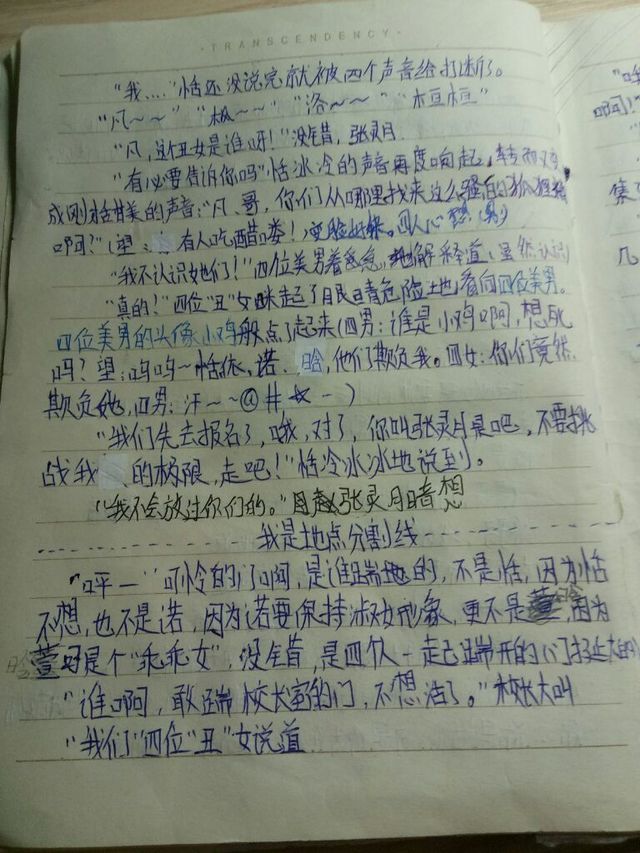 TRANSCENDENCY
"我……"恬还没说完就被四个声音给打断了。
"凡~~" "极~~" "洛~~" "桓桓"
"凡,这丑女是谁呀!"没错,张灵月
"有必要告诉你吗"恬冰冷的声音再度响起,转而又
成刚才甜美的声音:"凡哥,你们从哪里找来这么骚的狐狸精
啊?"(望: 有人吃醋喽!变脸好快。四人心想(男)
"我不认识她们!"四位美男着急地解释道,虽然认识
"真的!"四位"丑"女眯起了眼睛危险土地看向四位美男。
四位美男的头像小鸡般点了起来(四男:谁是小鸡啊,想死
吗?望:呜呜~恬依,诺 晗,他们欺负我。四女:你们竟然
欺负她,四男:汗~~@#☆-)
"我们先去报名了,哦,对了,你叫张灵月是吧,不要挑
战我 的极限,走吧!"恬冷冰冰地说到。
"我不会放过你们的。"张灵月暗想
我是地点分割线
"呯一"可怜的门啊,是谁踹地的,不是恬,因为恬
不想,也不是诺,因为诺要保持淑女形象,更不是晗,因为
晗好是个"乖乖女",没错,是四个人一起踹开的(门:
"谁啊,敢踹校长室的门,不想活了。"校长大叫
"我们"四位"丑"女说道
啊!
集
几